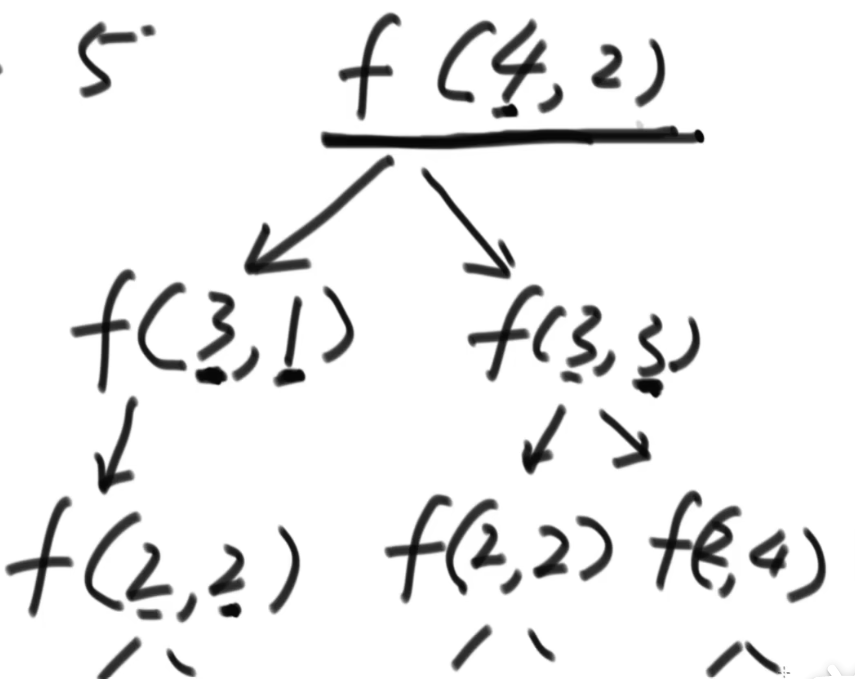 5
f(4,2)
f(3,1) f(3,3)
f(2,2) f(2,2) f(2,4)